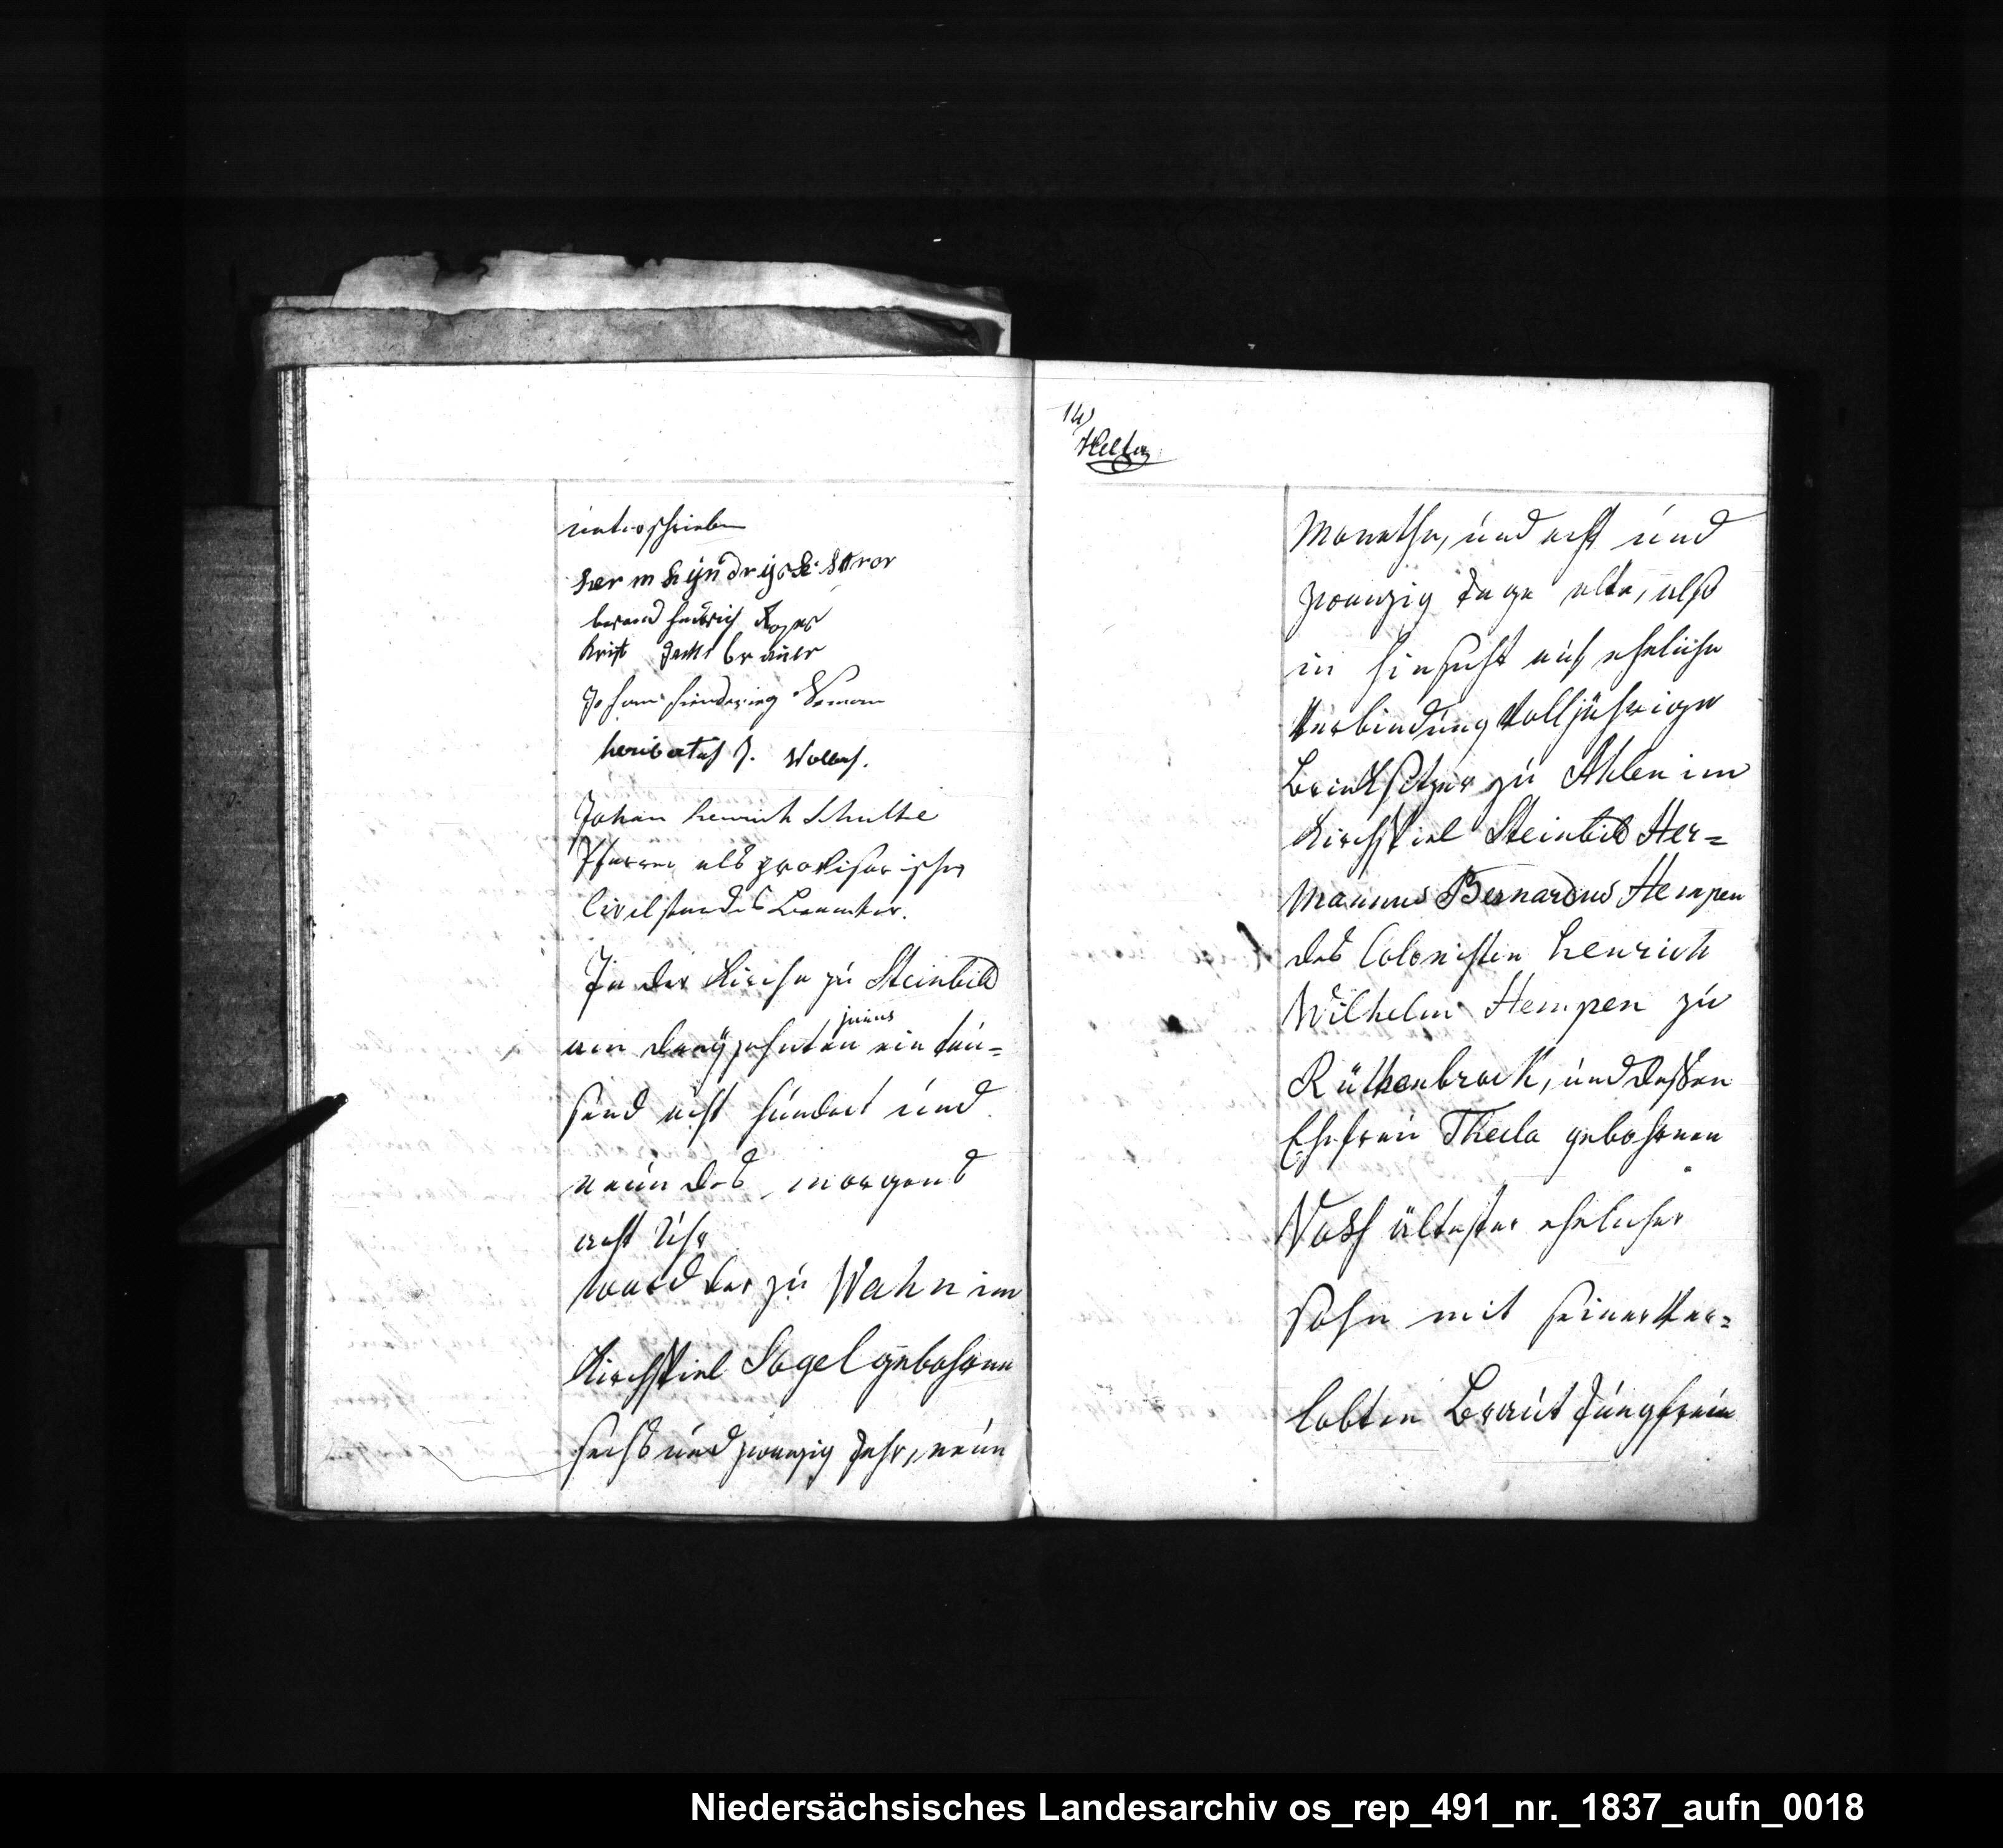 unterschrieben
herm hijndrijck
berend hindrich
brauer
Johann hindering
heribertus J. Wollens.
Johan henrich Schulte
Pfarrer als provisorischer
Civilstandes Beamter.
In der Kirche zu Steinbild
am dreyzehnten junius ein tau=
send acht hundert und
neun des morgens
acht Uhr
ward der zu Wahn im
Kirchspiel Sogel gebohrne
sechs und zwanzig Jahr, neun
14)
Monathe, und acht und
zwanzig Tage alte, also
in hinsicht auf eheliche
Verbindung volljährige
Brinksitzer zu Ahlen im
Kirchspiel Steinbild Her=
mannus Bernardus Hempen
des Colonisten henrich
Wilhelm Hempen zu
Rüthenbrock, und dessen
Ehefrau Thecla gebohrnen
Voss ältester ehelicher
Sohn mit seiner Ver=
lobten Braut Jungfrau
Niedersächsisches Landesarchiv os_rep_491_nr._1837_aufn_0018